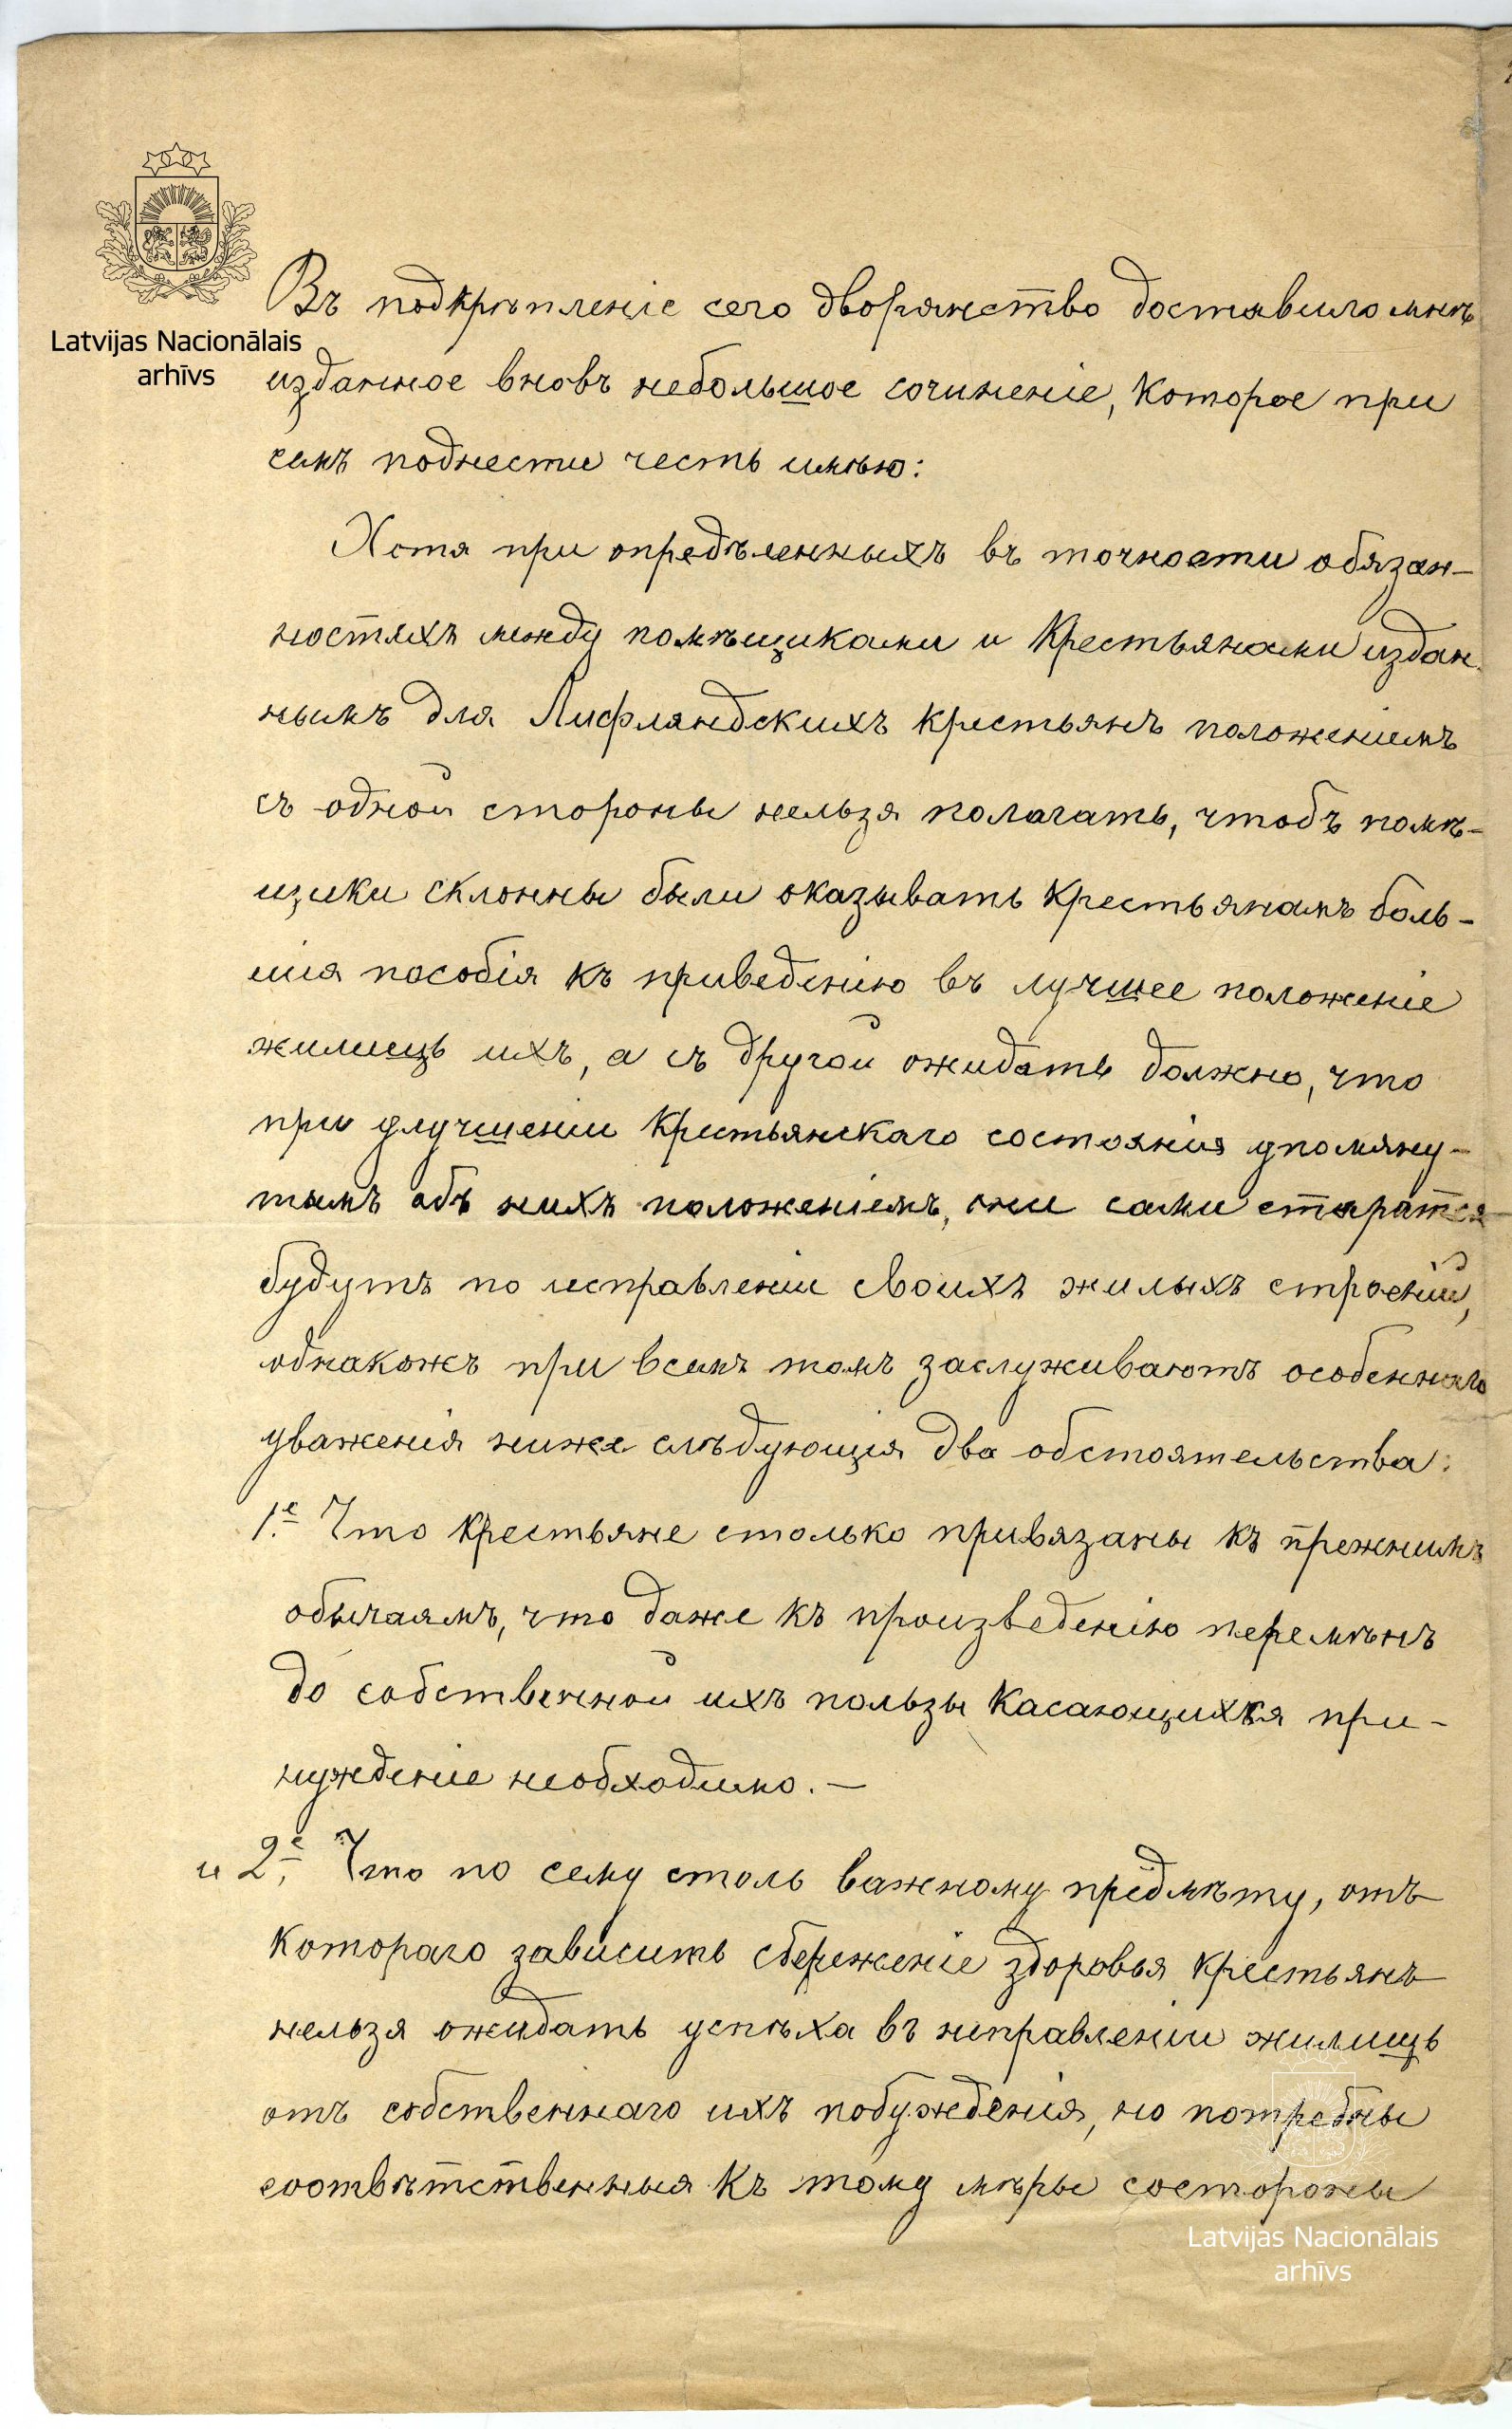 Latvijas Nacionālais
arhīvs
Въ подкрѣпленіе сего дворянство доставило мнѣ
изданное вновь небольшое сочиненіе, которое при
семъ поднести честь имѣю:
Хотя при опредѣленныхъ въ точности обязан-
ностяхъ между помѣщиками и крестьянами издан-
нымъ для Лифляндскихъ крестьянъ положеніемъ
съ одной стороны нельзя полагать, чтобъ помѣ-
щики склонны были оказывать крестьянамъ боль-
шія пособія къ приведенію въ лучшее положеніе
жилищъ ихъ, а съ другой ожидать должно, что
при улучшеніи крестьянскаго состоянія упомяну-
тымъ объ нихъ положеніемъ, они сами старатся
будутъ по исправленіи своихъ жилыхъ строеній,
однакожъ при всемъ томъ заслуживаютъ особеннаго
уваженія ниже слѣдующія два обстоятельства:
1.е Что крестьяне столько привязаны къ прежнимъ
обычаямъ, что даже къ произведенію перемѣнъ
до собственной ихъ пользы касающихся при-
нужденіе необходимо. —
и 2.е, Что по сему столь важному предмѣту, отъ
котораго зависитъ сбереженіе здоровья крестьянъ
нельзя ожидать успѣха въ исправленіи жилищъ
отъ собственнаго ихъ побужденія, но потребны
соотвѣтственныя къ тому мѣры состороны
Latvijas Nacionālais
arhīvs